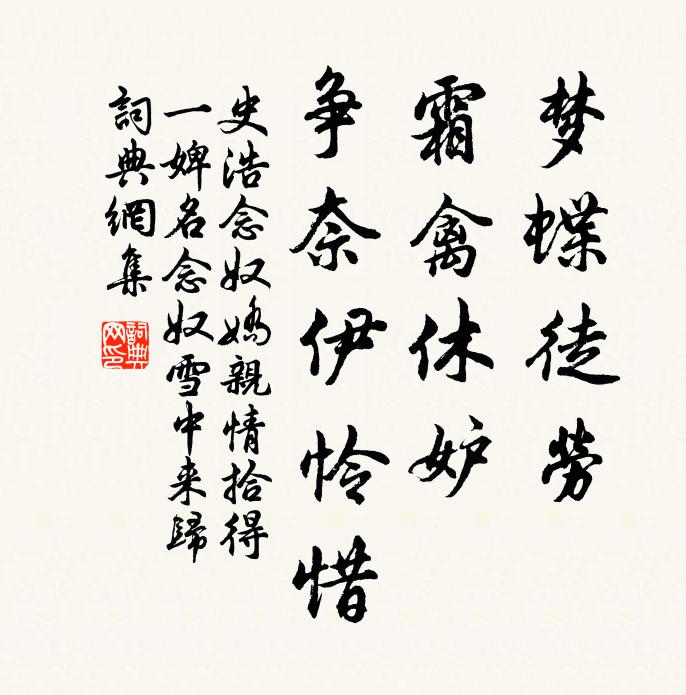 梦蝶徒劳
霜禽休妒
争奈伊怜惜
史浩念奴娇親情拾得
一婢名念奴雪中来歸
詞典網集
詞典网印